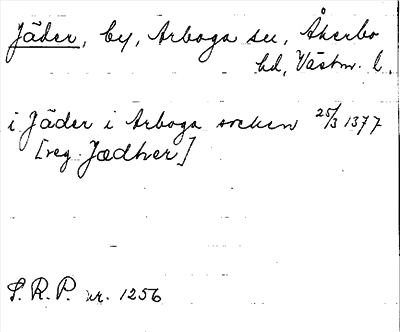 Jäder, by, Arboga sn, Åkerbo
hd, Västm. l.
i Jäder i Arboga socken 25/3 1377
[reg. Jædher]
S.R.P. nr. 1256